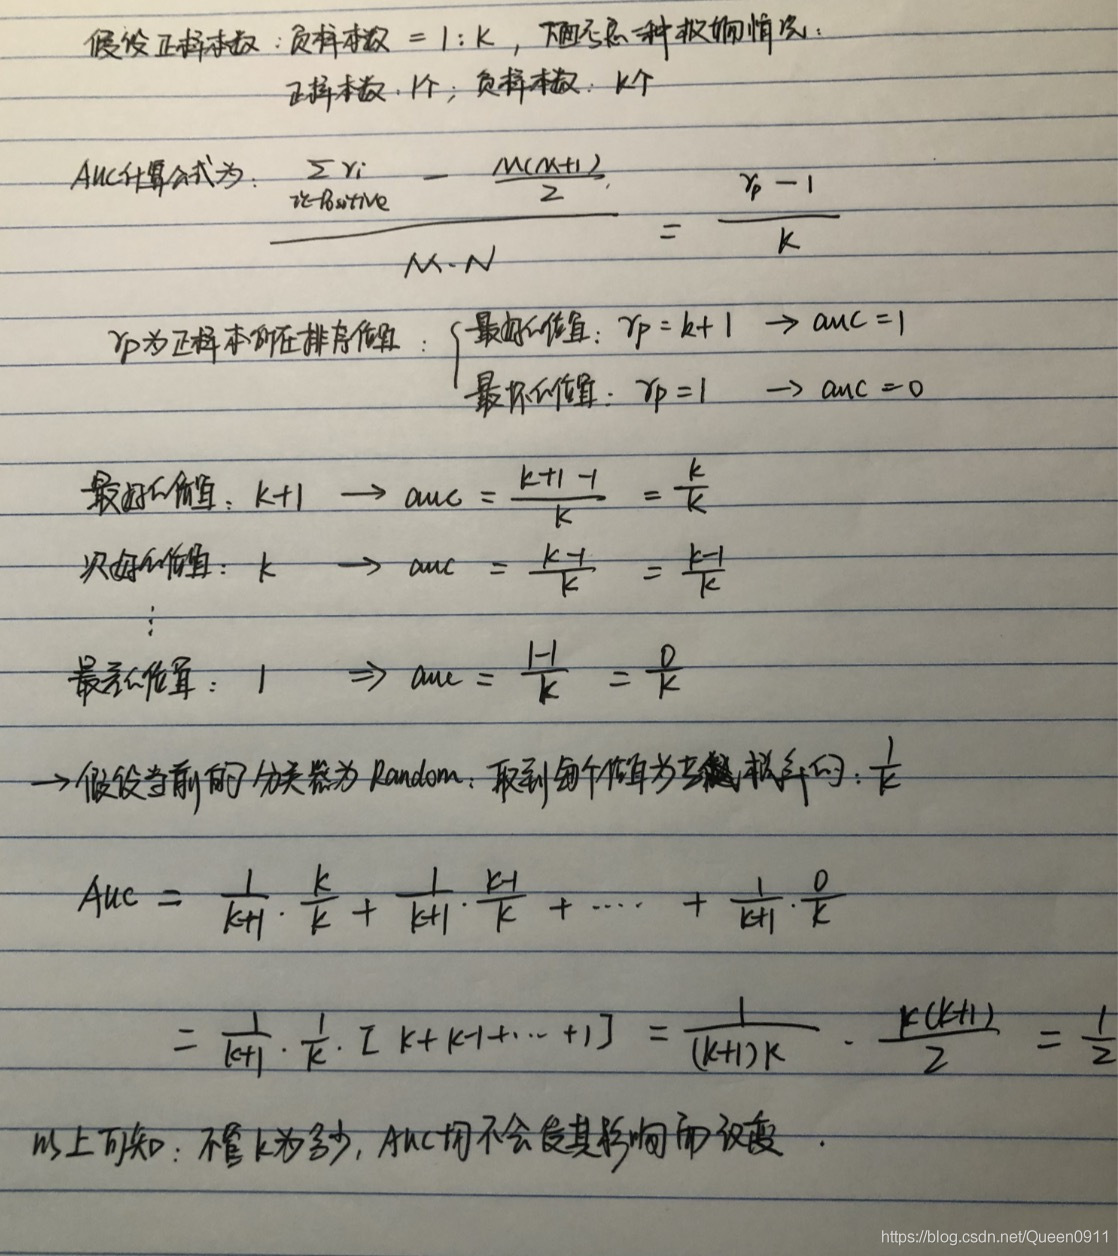 假设正样本数：负样本数 = 1：K，下面考虑一种极端情况：
正样本数：1个；负样本数：K个
AUC计算公式为：(∑_{i∈Positive} ri − M(M+1)/2) / (M·N) = (rp − 1)/k
rp为正样本所在排序位置：{ 最好的位置：rp = k+1 → auc = 1
最坏的位置：rp = 1 → auc = 0
最好的位置：k+1 → auc = (k+1−1)/k = k/k
次好的位置：k → auc = (k−1)/k = (k−1)/k
⋮
最差的位置：1 ⇒ auc = (1−1)/k = 0/k
→ 假设当前的分类器为Random：取到每个位置为概率的：1/k
AUC = 1/(k+1) · k/k + 1/(k+1) · (k−1)/k + ···· + 1/(k+1) · 0/k
= 1/(k+1) · 1/k · [k+k−1+···+1] = 1/((k+1)k) · k(k+1)/2 = 1/2
以上可知：不管k为多少，AUC均不会受其影响而改变.
https://blog.csdn.net/Queen0911